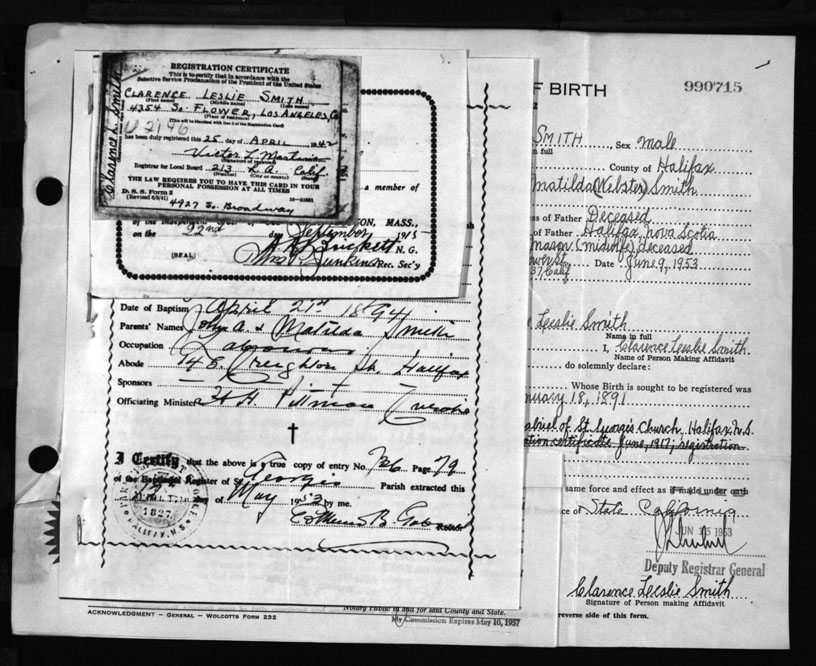 REGISTRATION CERTIFICATE
This is to certify that in accordance with the
Selective Service Proclamation of the President of the United States
CLARENCE LESLIE SMITH
(First name) (Middle name) (Last name)
4354 So. FLOWER, LOS ANGELES Co
(Place of residence)
(This will be identical with line 2 of the Registration Card)
U 2196
has been duly registered this 25 day of APRIL 1942
Registrar for Local Board 213 L.A. Calif.
(Number) (City or county) (State)
THE LAW REQUIRES YOU TO HAVE THIS CARD IN YOUR
PERSONAL POSSESSION AT ALL TIMES
D. S. S. Form 2
(Revised 6/9/41)
4927 So. Broadway
Clarence L. Smith
a member of
SON, MASS.,
on the 22nd day September 1915
(SEAL)
N. G.
Rec. Sec'y
Date of Baptism April 21st 1894
Parents' Names John A. & Matilda Smith
Occupation
Abode 148 Creighton St. Halifax
Sponsors
Officiating Minister H. H. Pittman Curate
I Certify that the above is a true copy of entry No. 736 Page 79
of the Baptismal Register of St. Georges Parish extracted this
day of May 1953 by me.
Rector
1827
HALIFAX, N.S.
OF BIRTH
990715
SMITH, Sex male
in full
County of Halifax
Matilda (Webster) Smith
ss of Father Deceased
of Father Halifax, Nova Scotia
mason (midwife) deceased
37 Calif Date June 9, 1953
Leslie Smith
Name in full
I, Clarence Leslie Smith
Name of Person Making Affidavit
do solemnly declare:
Whose Birth is sought to be registered was
nuary 18, 1891
of St Georges Church, Halifax N.S.
tion certificate June, 1917; registration
same force and effect as if made under oath
ce of State California
JUN 15 1953
Deputy Registrar General
Clarence Leslie Smith
Signature of Person making Affidavit
reverse side of this form.
Notary Public in and for said County and State.
My Commission Expires May 10, 1957
ACKNOWLEDGMENT – GENERAL – WOLCOTTS FORM 232